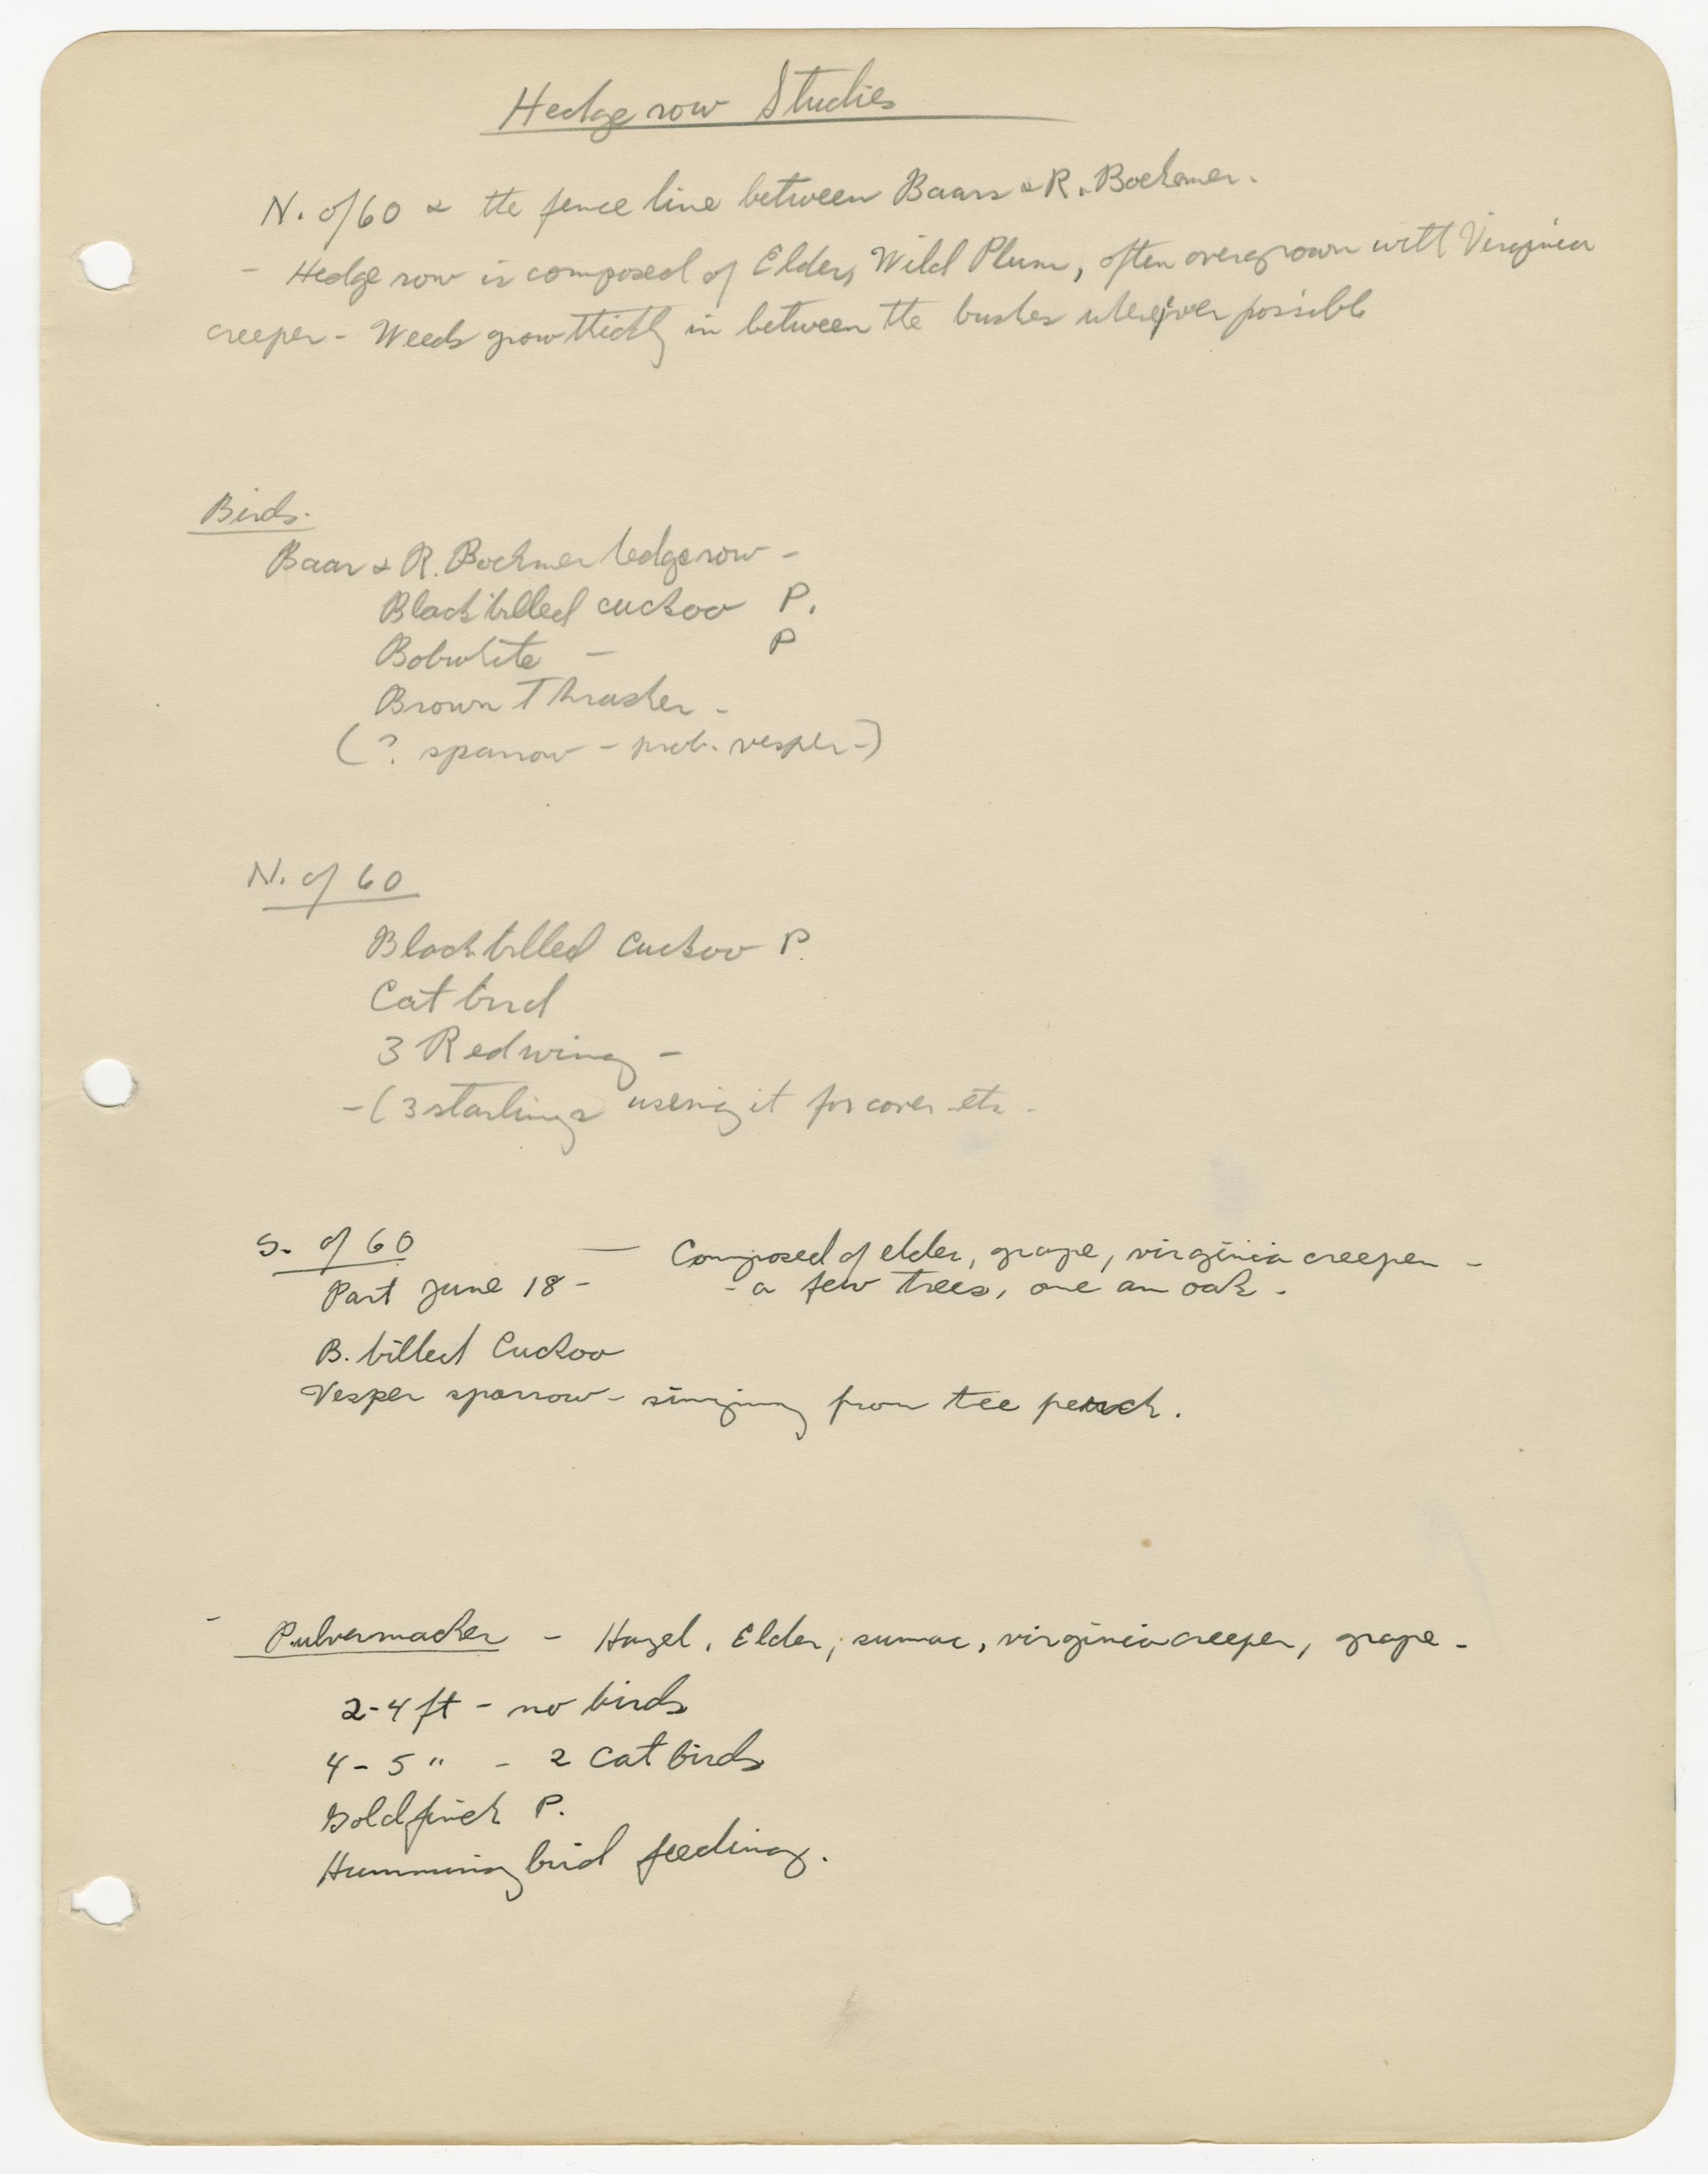 Hedge row Studies
N. of 60 & the fence line between Baars & R. Boehmer.
- Hedge row is composed of Elder, Wild Plum, often overgrown with Virginia
creeper - Weeds grow thickly in between the bushes wherever possible
Birds.
Baar & R. Boehmer hedgerow -
Black billed cuckoo P.
Bobwhite - P
Brown Thrasher -
(? sparrow - prob. vesper -)
N. of 60
Black billed Cuckoo P.
Cat bird
3 Redwing -
- (3 starlings using it for cover etc -
S. of 60 — Composed of elder, grape, virginia creeper -
Part June 18 - - a few trees, one an oak.
B. billed Cuckoo
Vesper sparrow - singing from tree perch.
- Pulvermacher - Hazel, Elder, sumac, virginia creeper, grape -
2-4 ft - no birds
4-5 " - 2 Cat birds
Goldfinch P.
Humming bird feeding.